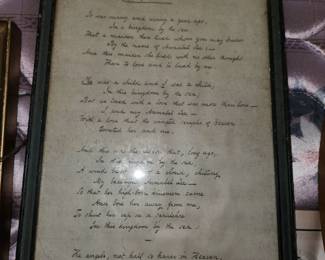 It was many and many a year ago,
In a kingdom by the sea,
That a maiden there lived whom you may know
By the name of Annabel Lee;—
And this maiden she lived with no other thought
Than to love and be loved by me.
She was a child and I was a child,
In this kingdom by the sea,
But we loved with a love that was more than love—
I and my Annabel Lee—
With a love that the winged seraphs of Heaven
Coveted her and me.
And this was the reason that, long ago,
In this kingdom by the sea,
A wind blew out of a cloud,
My beautiful Annabel Lee;—
So that her high-born kinsmen came
And bore her away from me,
To shut her up in a sepulchre
In this kingdom by the sea.
The angels, not half so happy in Heaven,